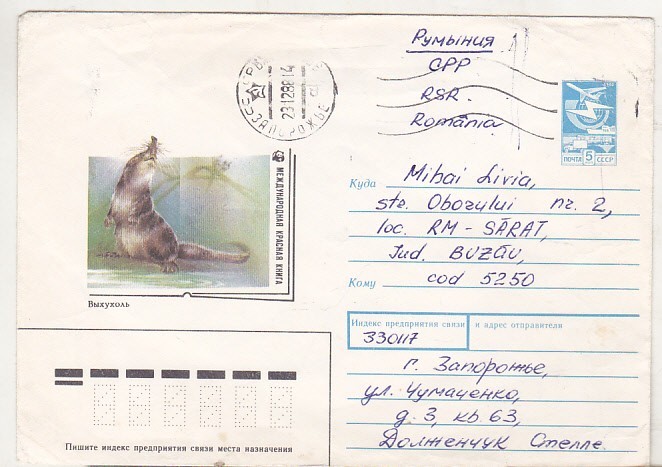 Румыния
СРР
RSR.
România
ЗАПОРОЖЬЕ
23128814
ПОЧТА 5 СССР
МЕЖДУНАРОДНАЯ КРАСНАЯ КНИГА
Выхухоль
Куда Mihai Livia,
str. Oborului nr. 2,
loc. RM-SĂRAT,
Jud. BUZĂU,
Кому cod 5250
Индекс предприятия связи и адрес отправителя
330117
г. Запорожье,
ул. Чумаченко,
д. 3, кв 63,
Долженчук Стелле.
Пишите индекс предприятия связи места назначения